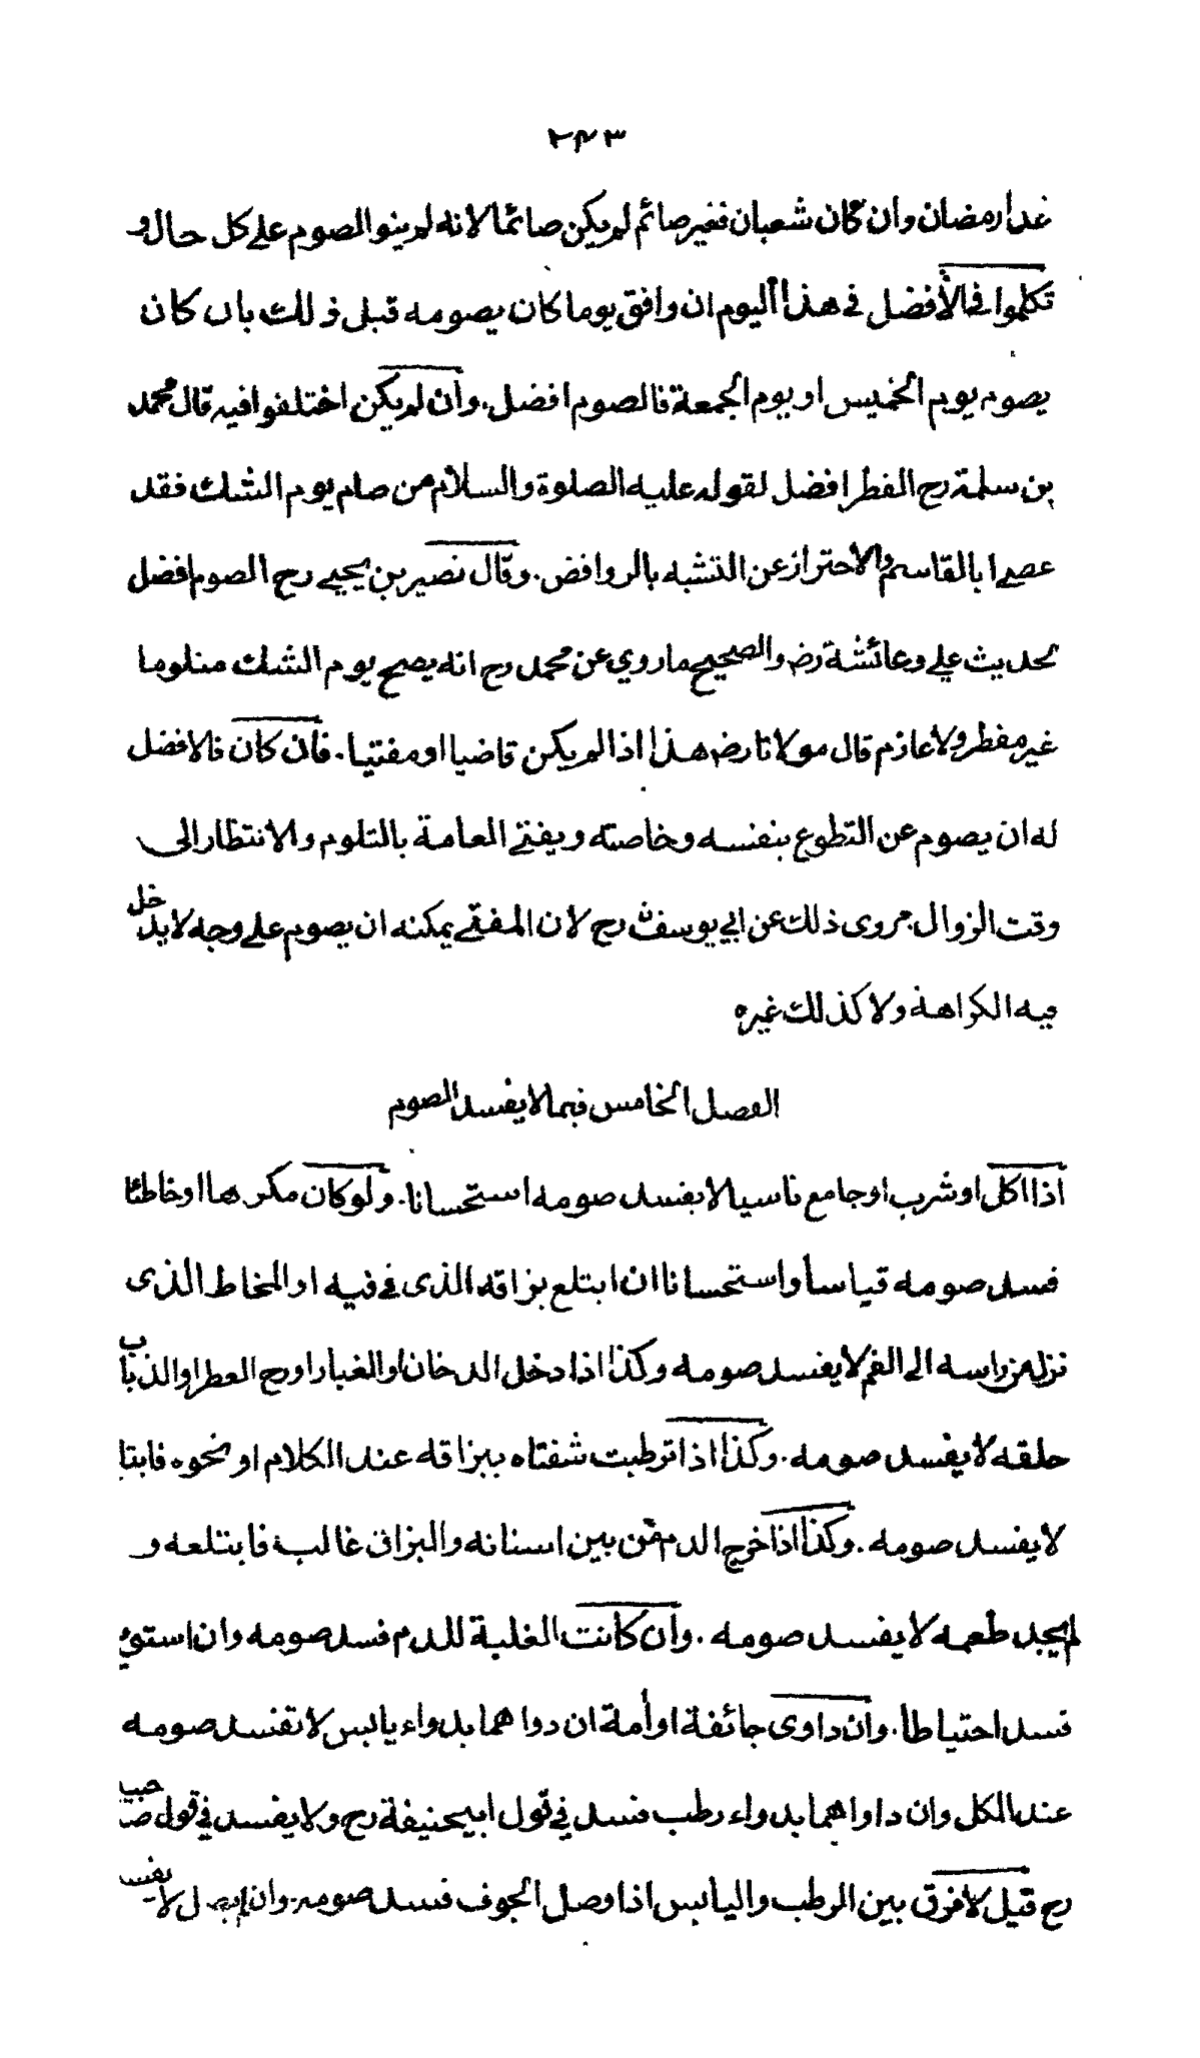 ٢٤٣
غدا رمضان وان كان شعبان فغير صائم لم يكن صائما لانه لم ينو الصوم على كل حال و
تكلموا في الأفضل في هذا اليوم ان وافق يوما كان يصومه قبل ذلك بان كان
يصوم يوم الخميس او يوم الجمعة فالصوم افضل. وان لم يكن اختلفوا فيه قال محمد
بن سلمة رح الفطر افضل لقوله عليه الصلوة والسلام من صام يوم الشك فقد
عصى ابا القاسم والاحتراز عن التشبه بالروافض. وقال نصير بن يحيى رح الصوم افضل
لحديث علي وعائشة رض والصحيح ماروي عن محمد رح انه يصبح يوم الشك متلوما
غير مفطر ولا عازم قال مولانا رض هذا اذا لم يكن قاضيا او مفتيا. فان كان فالافضل
له ان يصوم عن التطوع بنفسه وخاصته ويفتي العامة بالتلوم والانتظار الى
وقت الزوال مروى ذلك عن ابي يوسف رح لان المفتي يمكنه ان يصوم على وجه لا يدخل
فيه الكراهة ولا كذلك غيره
الفصل الخامس فيما لا يفسد الصوم
اذا اكل او شرب او جامع ناسيا لا يفسد صومه استحسانا. ولو كان مكرها او خاطئا
فسد صومه قياسا واستحسانا ان ابتلع بزاقه الذى في فيه او المخاط الذى
نزل من راسه الى الفم لا يفسد صومه وكذا اذا دخل الدخان او الغبار او رح العطر او الذباب
حلقه لا يفسد صومه. وكذا اذا ترطبت شفتاه ببزاقه عند الكلام او نحوه فابتلـ
لا يفسد صومه. وكذا اذا خرج الدم من بين اسنانه والبزاق غالب فابتلعه و
لم يجد طعمه لا يفسد صومه. وان كانت الغلبة للدم فسد صومه وان استوى
فسد احتياطا. وان داوى جائفة او أمة ان دواهما بدواء يابس لا تفسد صومه
عند الكل وان داواهما بدواء رطب فسد في قول ابيحنيفة رح ولا يفسد في قول صاحبيه
رح قيل لا فرق بين الرطب واليابس اذا وصل الجوف فسد صومه وان لم يصل لا يفسد